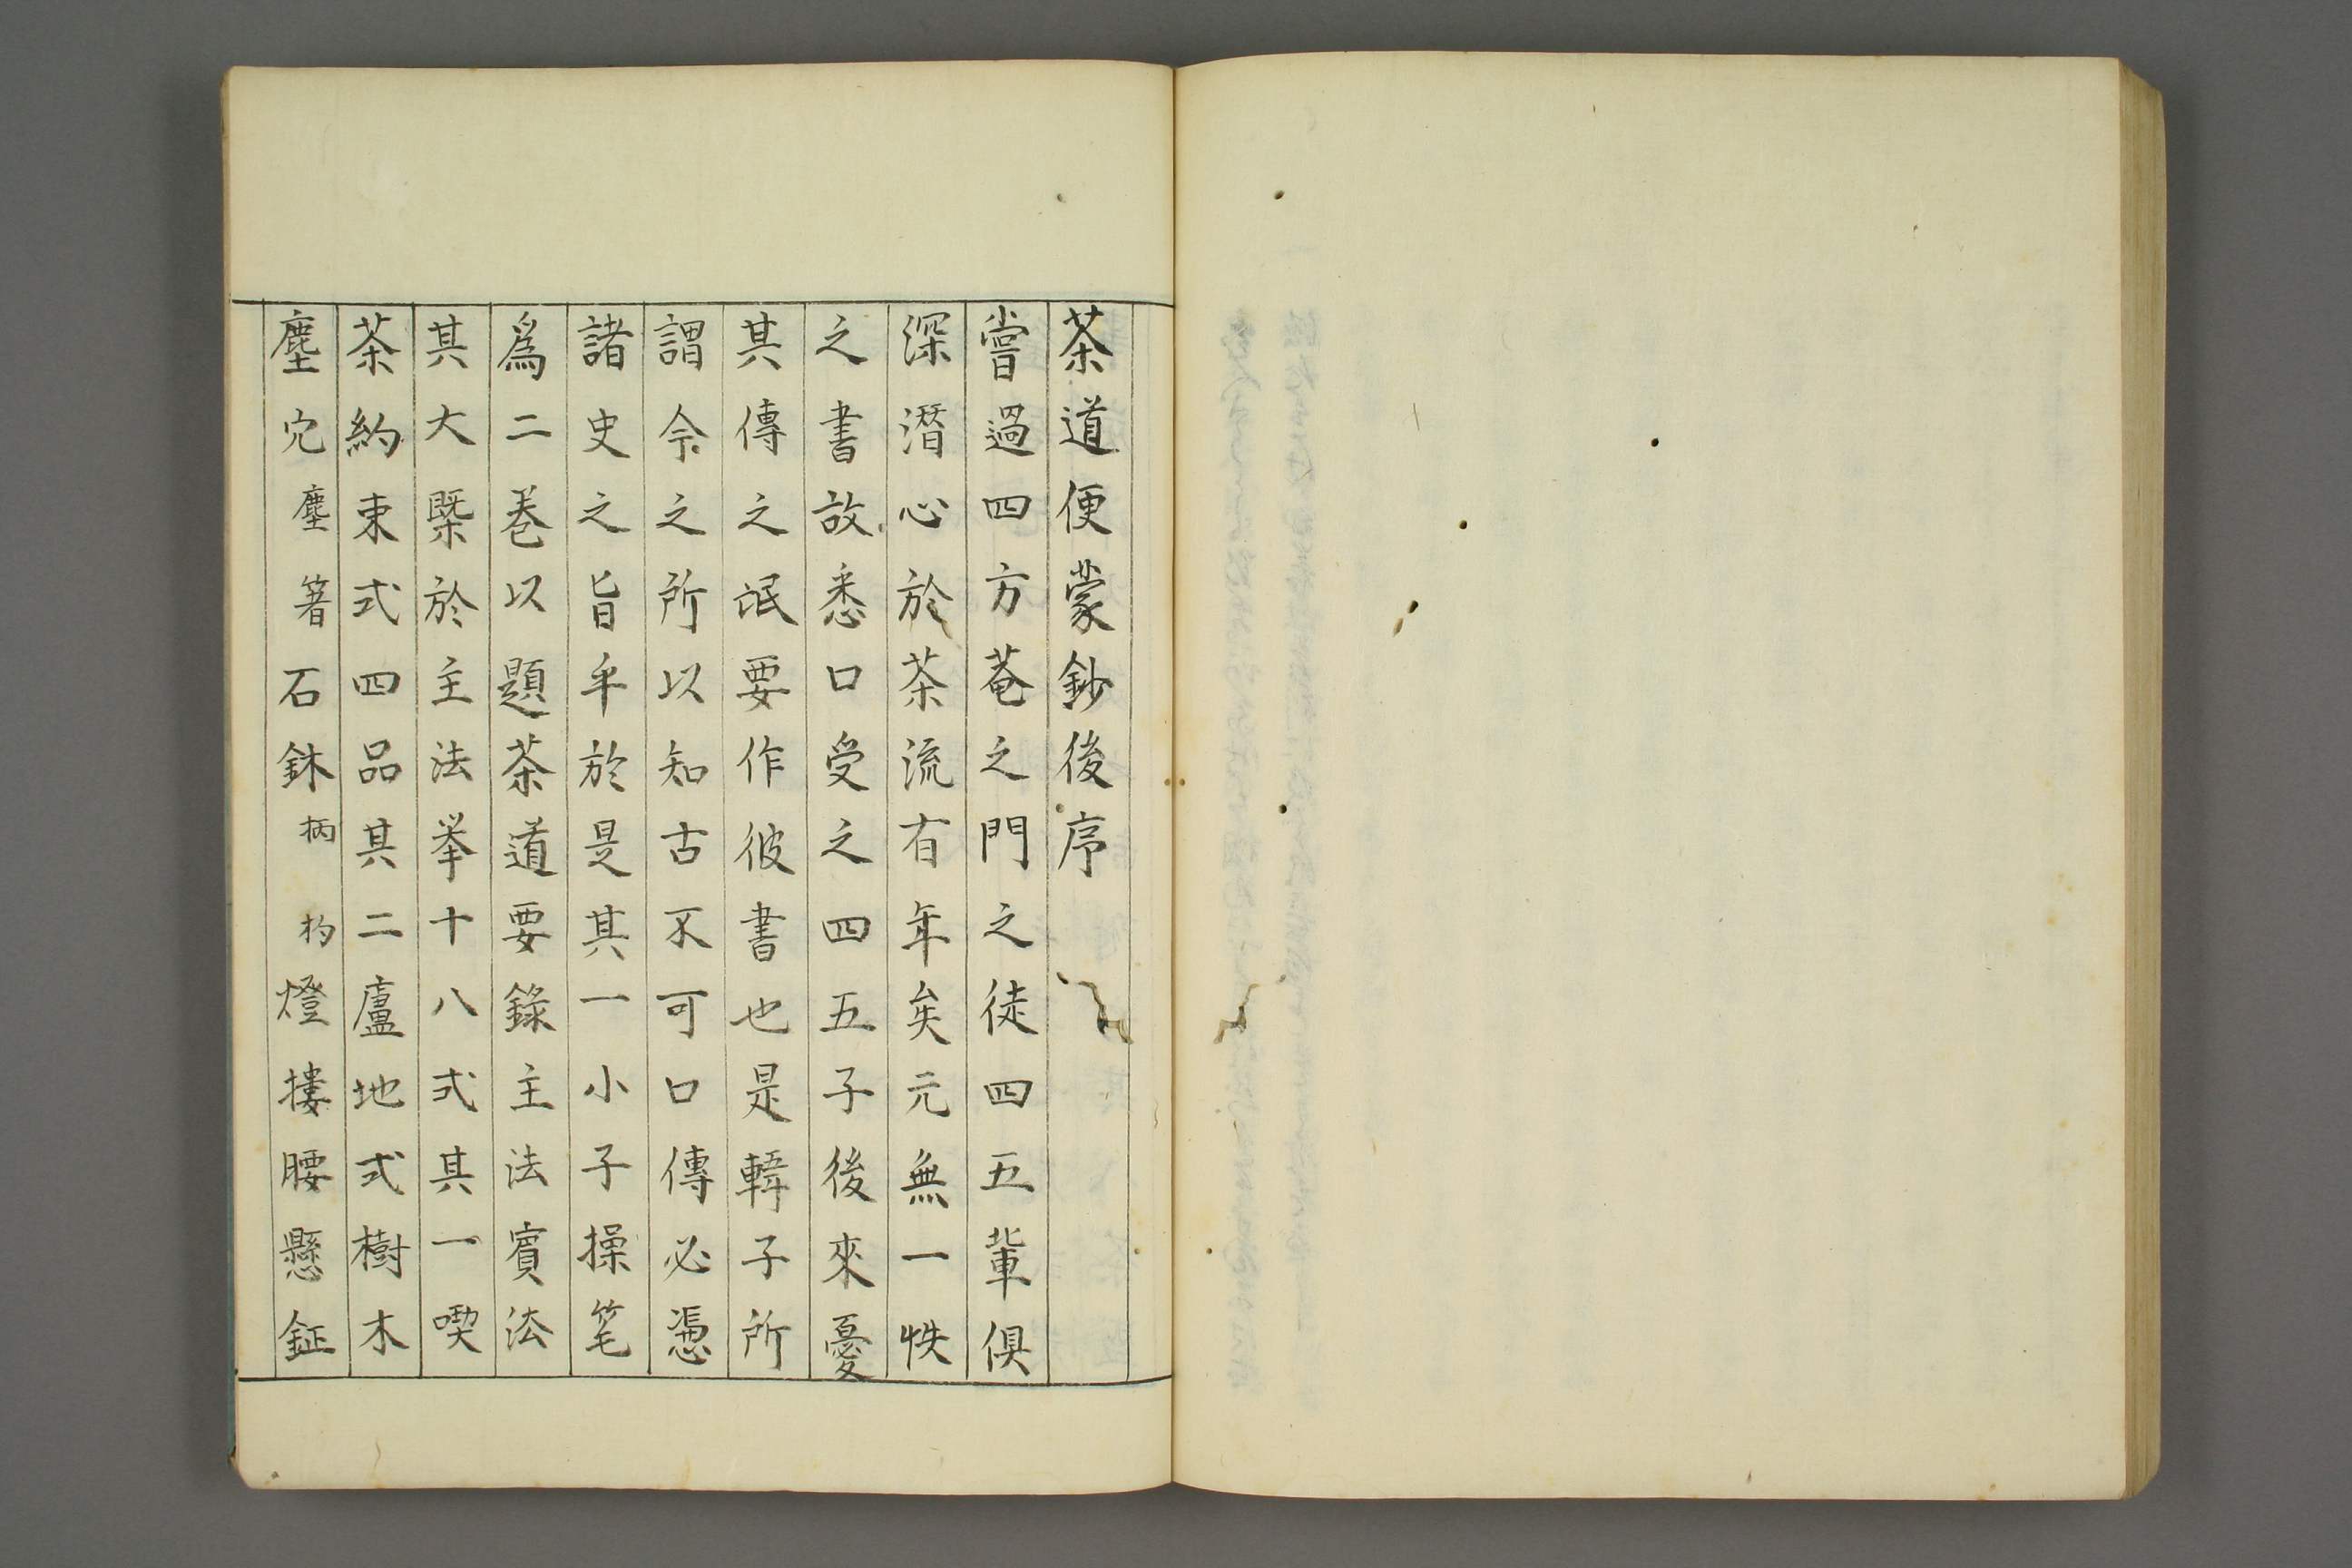 茶道便蒙鈔後序
嘗過四方菴之門之徒四五輩俱
深潛心於茶流有年矣元無一帙
之書故悉口受之四五子後來憂
其傳之泯要作彼書也是韓子所
謂今之所以知古不可口傳必憑
諸史之旨乎於是其一小子操笔
爲二巻以題茶道要錄主法賓法
其大槩於主法挙十八式其一喫
茶約束式四品其二廬地式樹木
塵穴塵箸石鉢柄杓燈摟腰懸鉦